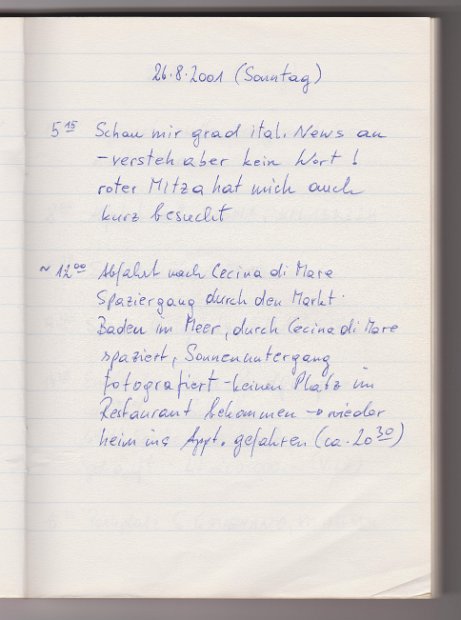 26.8.2001 (Sonntag)
5 15 Schau mir grad ital. News an
- versteh aber kein Wort !
roter Mitza hat mich auch
kurz besucht
~ 12 00 Abfahrt nach Cecina di Mare
Spaziergang durch den Markt.
Baden im Meer, durch Cecina di Mare
spaziert, Sonnenuntergang
fotografiert - keinen Platz im
Restaurant bekommen → wieder
heim ins Appt. gefahren (ca. 20 30)